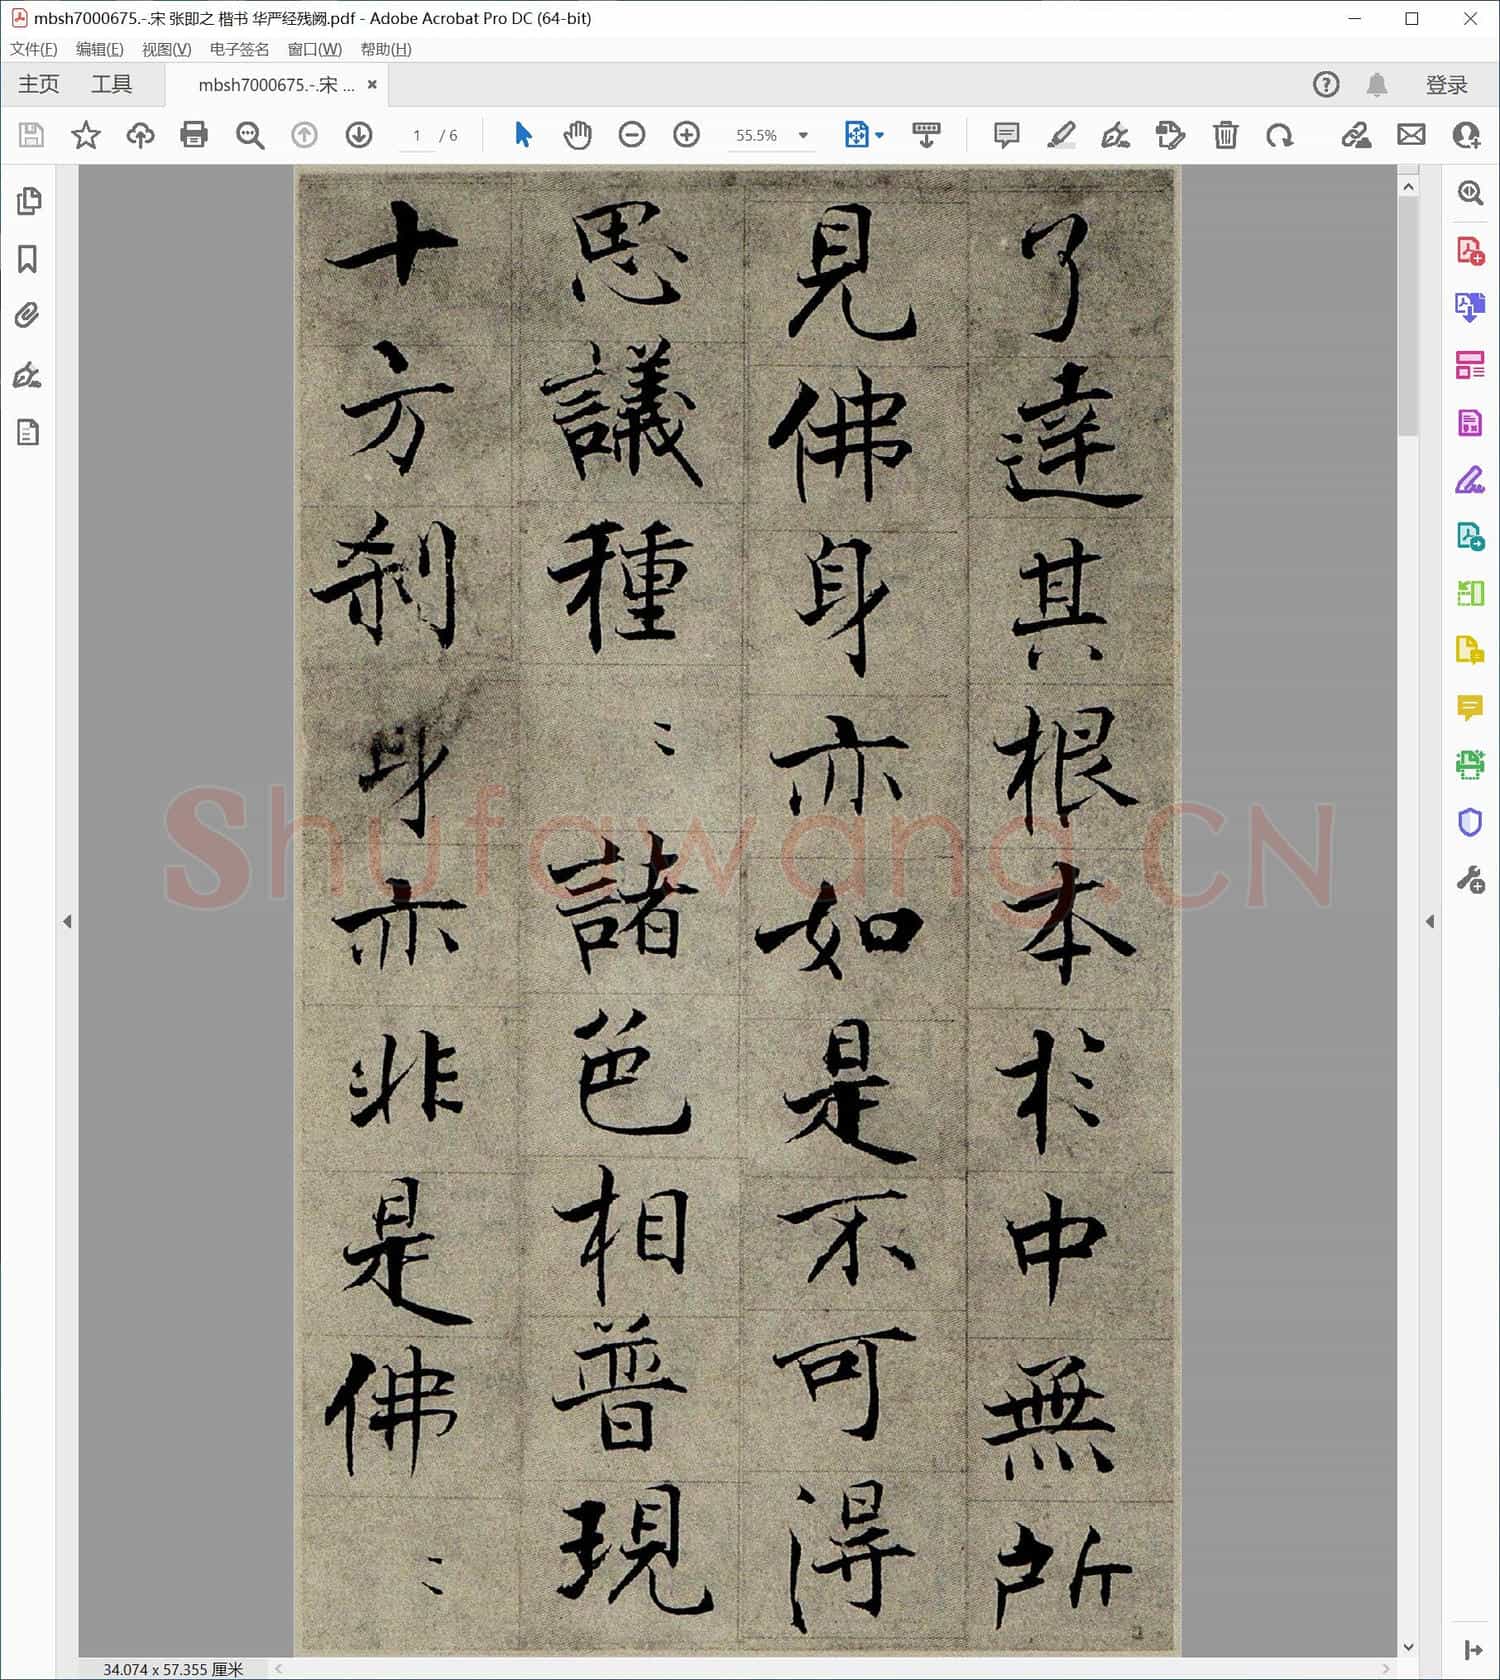 mbsh7000675.-.宋 张即之 楷书 华严经残阙.pdf - Adobe Acrobat Pro DC (64-bit)
文件(F) 编辑(E) 视图(V) 电子签名 窗口(W) 帮助(H)
主页 工具 mbsh7000675.-.宋 ... × 登录
1 / 6 55.5%
了達其根本於中無所
見佛身亦如是不可得
思議種〻諸色相普現
十方刹身亦非是佛〻
Shufawang.CN
34.074 x 57.355 厘米